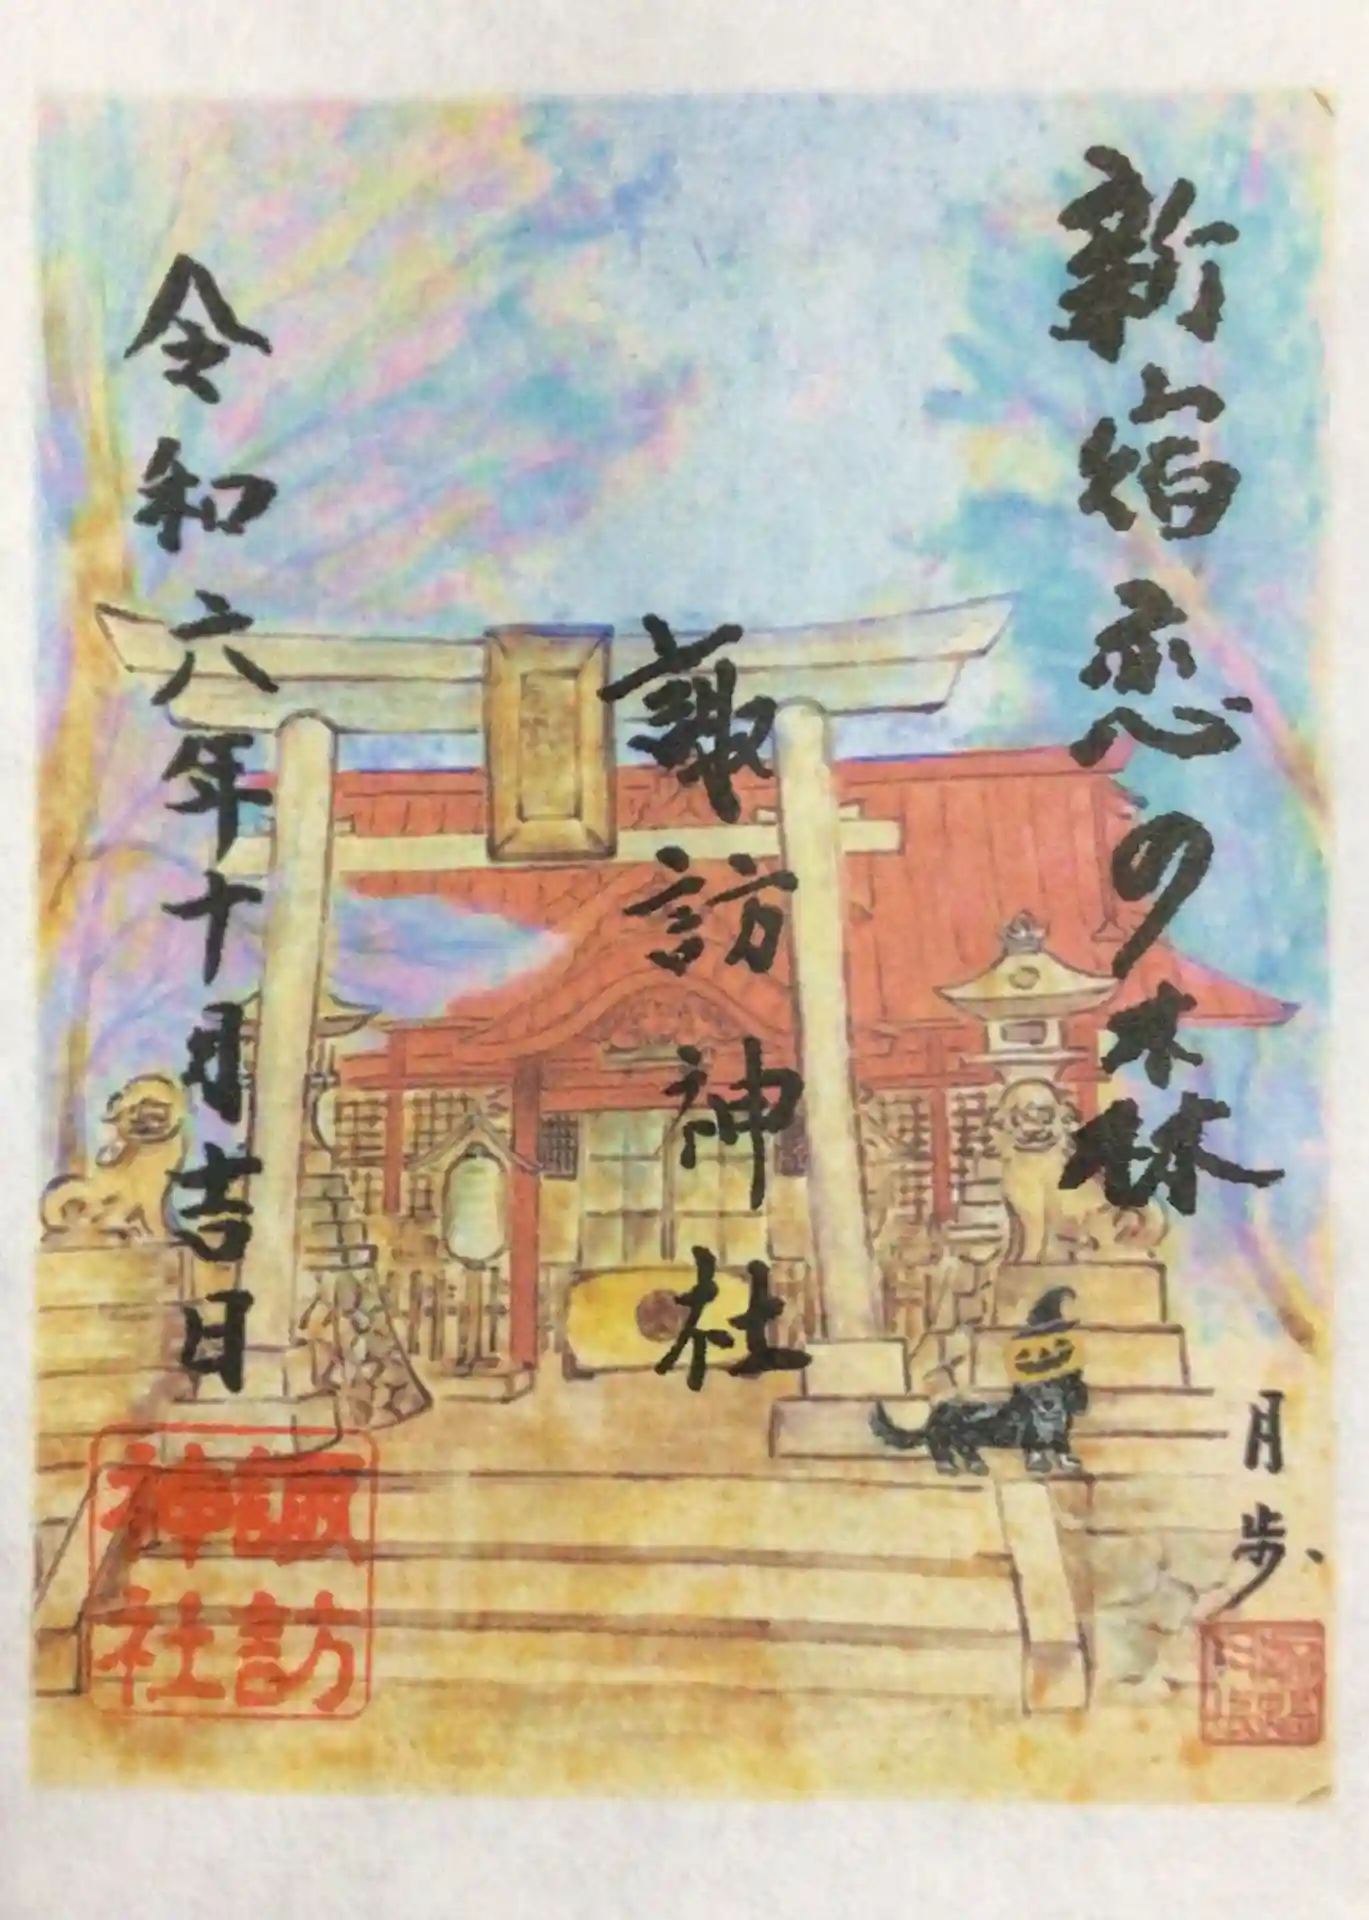 新宿恋の森
諏訪神社
令和六年十月吉日
月歩
諏訪
神社